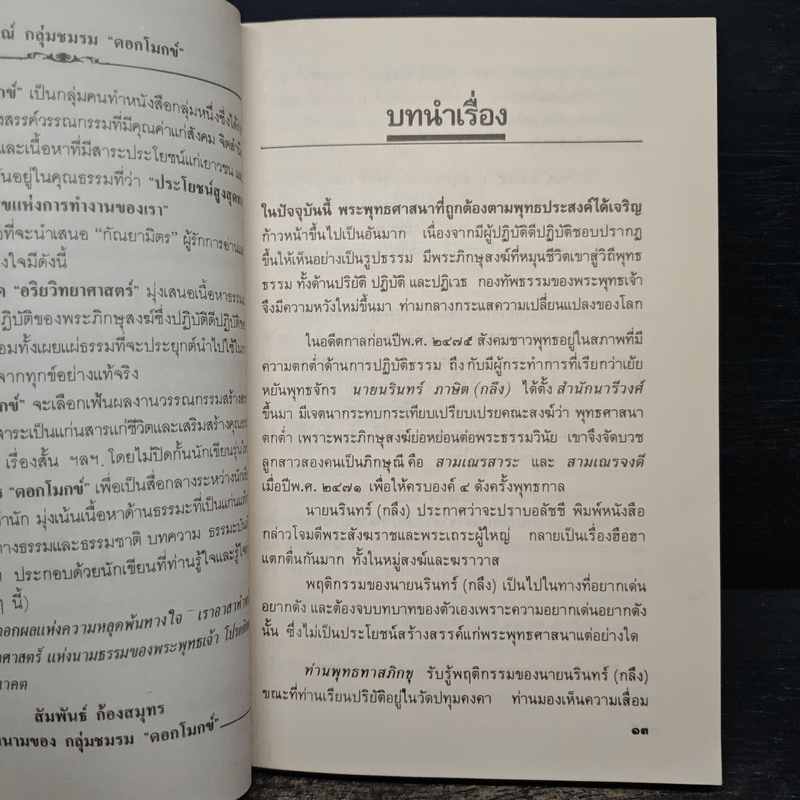 ณ์ กลุ่มชมรม "ดอกโมกข์"
กข์" เป็นกลุ่มคนทำหนังสือกลุ่มหนึ่งซึ่งได้
งสรรค์วรรณกรรมที่มีคุณค่าแก่สังคม
และเนื้อหาที่มีสาระประโยชน์แก่เยาวชน
นอยู่ในคุณธรรมที่ว่า "ประโยชน์สูงสุด
ขแห่งการทำงานของเรา"
อที่จะนำเสนอ "กัณยามิตร" ผู้รักการอ่าน
งใจมีดังนี้
ด "อริยวิทยาศาสตร์" มุ่งเสนอเนื้อหาธรรม
ฏิบัติของพระภิกษุสงฆ์ซึ่งปฏิบัติดีปฏิบัติ
อมทั้งเผยแผ่ธรรมที่จะประยุกต์นำไปใช้ใน
จากทุกข์อย่างแท้จริง
กข์" จะเลือกเฟ้นผลงานวรรณกรรมสร้าง
าระเป็นแก่นสารแก่ชีวิตและเสริมสร้างคุณ
เรื่องสั้น ฯลฯ. โดยไม่ปิดกั้นนักเขียนรุ่น
ร "ดอกโมกข์" เพื่อเป็นสื่อกลางระหว่าง
ำนัก มุ่งเน้นเนื้อหาด้านธรรมะที่เป็นแก่น
างธรรมและธรรมชาติ บทความ
ประกอบด้วยนักเขียนที่ท่านรู้ใจและรู้
ๆ นี้)
อกผลแห่งความหลุดพ้นทางใจ เราอาสา
าศาสตร์ แห่งนามธรรมของพระพุทธเจ้า
นาคต
สัมพันธ์ ก้องสมุทร
นามของ กลุ่มชมรม "ดอกโมกข์"
บทนำเรื่อง
ในปัจจุบันนี้ พระพุทธศาสนาที่ถูกต้องตามพุทธประสงค์ได้เจริญ
ก้าวหน้าขึ้นไปเป็นอันมาก เนื่องจากมีผู้ปฏิบัติดีปฏิบัติชอบปรากฏ
ขึ้นให้เห็นอย่างเป็นรูปธรรม มีพระภิกษุสงฆ์ที่หมุนชีวิตเขาสู่วิถีพุทธ
ธรรม ทั้งด้านปริยัติ ปฏิบัติ และปฏิเวธ กองทัพธรรมของพระพุทธเจ้า
จึงมีความหวังใหม่ขึ้นมา ท่ามกลางกระแสความเปลี่ยนแปลงของโลก
ในอดีตกาลก่อนปีพ.ศ. ๒๔๗๕ สังคมชาวพุทธอยู่ในสภาพที่มี
ความตกต่ำด้านการปฏิบัติธรรม ถึง กับมีผู้กระทำการที่เรียกว่าเย้ย
หยันพุทธจักร นายนรินทร์ ภาษิต (กลึง) ได้ตั้ง สำนักนารีวงศ์
ขึ้นมา มีเจตนากระทบกระเทียบเปรียบเปรยคณะสงฆ์ว่า พุทธศาสนา
ตกต่ำ เพราะพระภิกษุสงฆ์ย่อหย่อนต่อพระธรรมวินัย เขาจึงจัดบวช
ลูกสาวสองคนเป็นภิกษุณี คือ สามเณรสาระ และ สามเณรจงดี
เมื่อปีพ.ศ. ๒๔๗๑ เพื่อให้ครบองค์ ๔ ดังครั้งพุทธกาล
นายนรินทร์ (กลึง) ประกาศว่าจะปราบอลัชชี พิมพ์หนังสือ
กล่าวโจมตีพระสังฆราชและพระเถระผู้ใหญ่ กลายเป็นเรื่องฮือฮา
แตกตื่นกันมาก ทั้งในหมู่สงฆ์และฆราวาส
พฤติกรรมของนายนรินทร์ (กลึง) เป็นไปในทางที่อยากเด่น
อยากดัง และต้องจบบทบาทของตัวเองเพราะความอยากเด่นอยากดัง
นั้น ซึ่งไม่เป็นประโยชน์สร้างสรรค์แก่พระพุทธศาสนาแต่อย่างใด
ท่านพุทธทาสภิกขุ รับรู้พฤติกรรมของนายนรินทร์ (กลึง)
ขณะที่ท่านเรียนปริยัติอยู่ในวัดปทุมคงคา ท่านมองเห็นความเสื่อม
๑๓